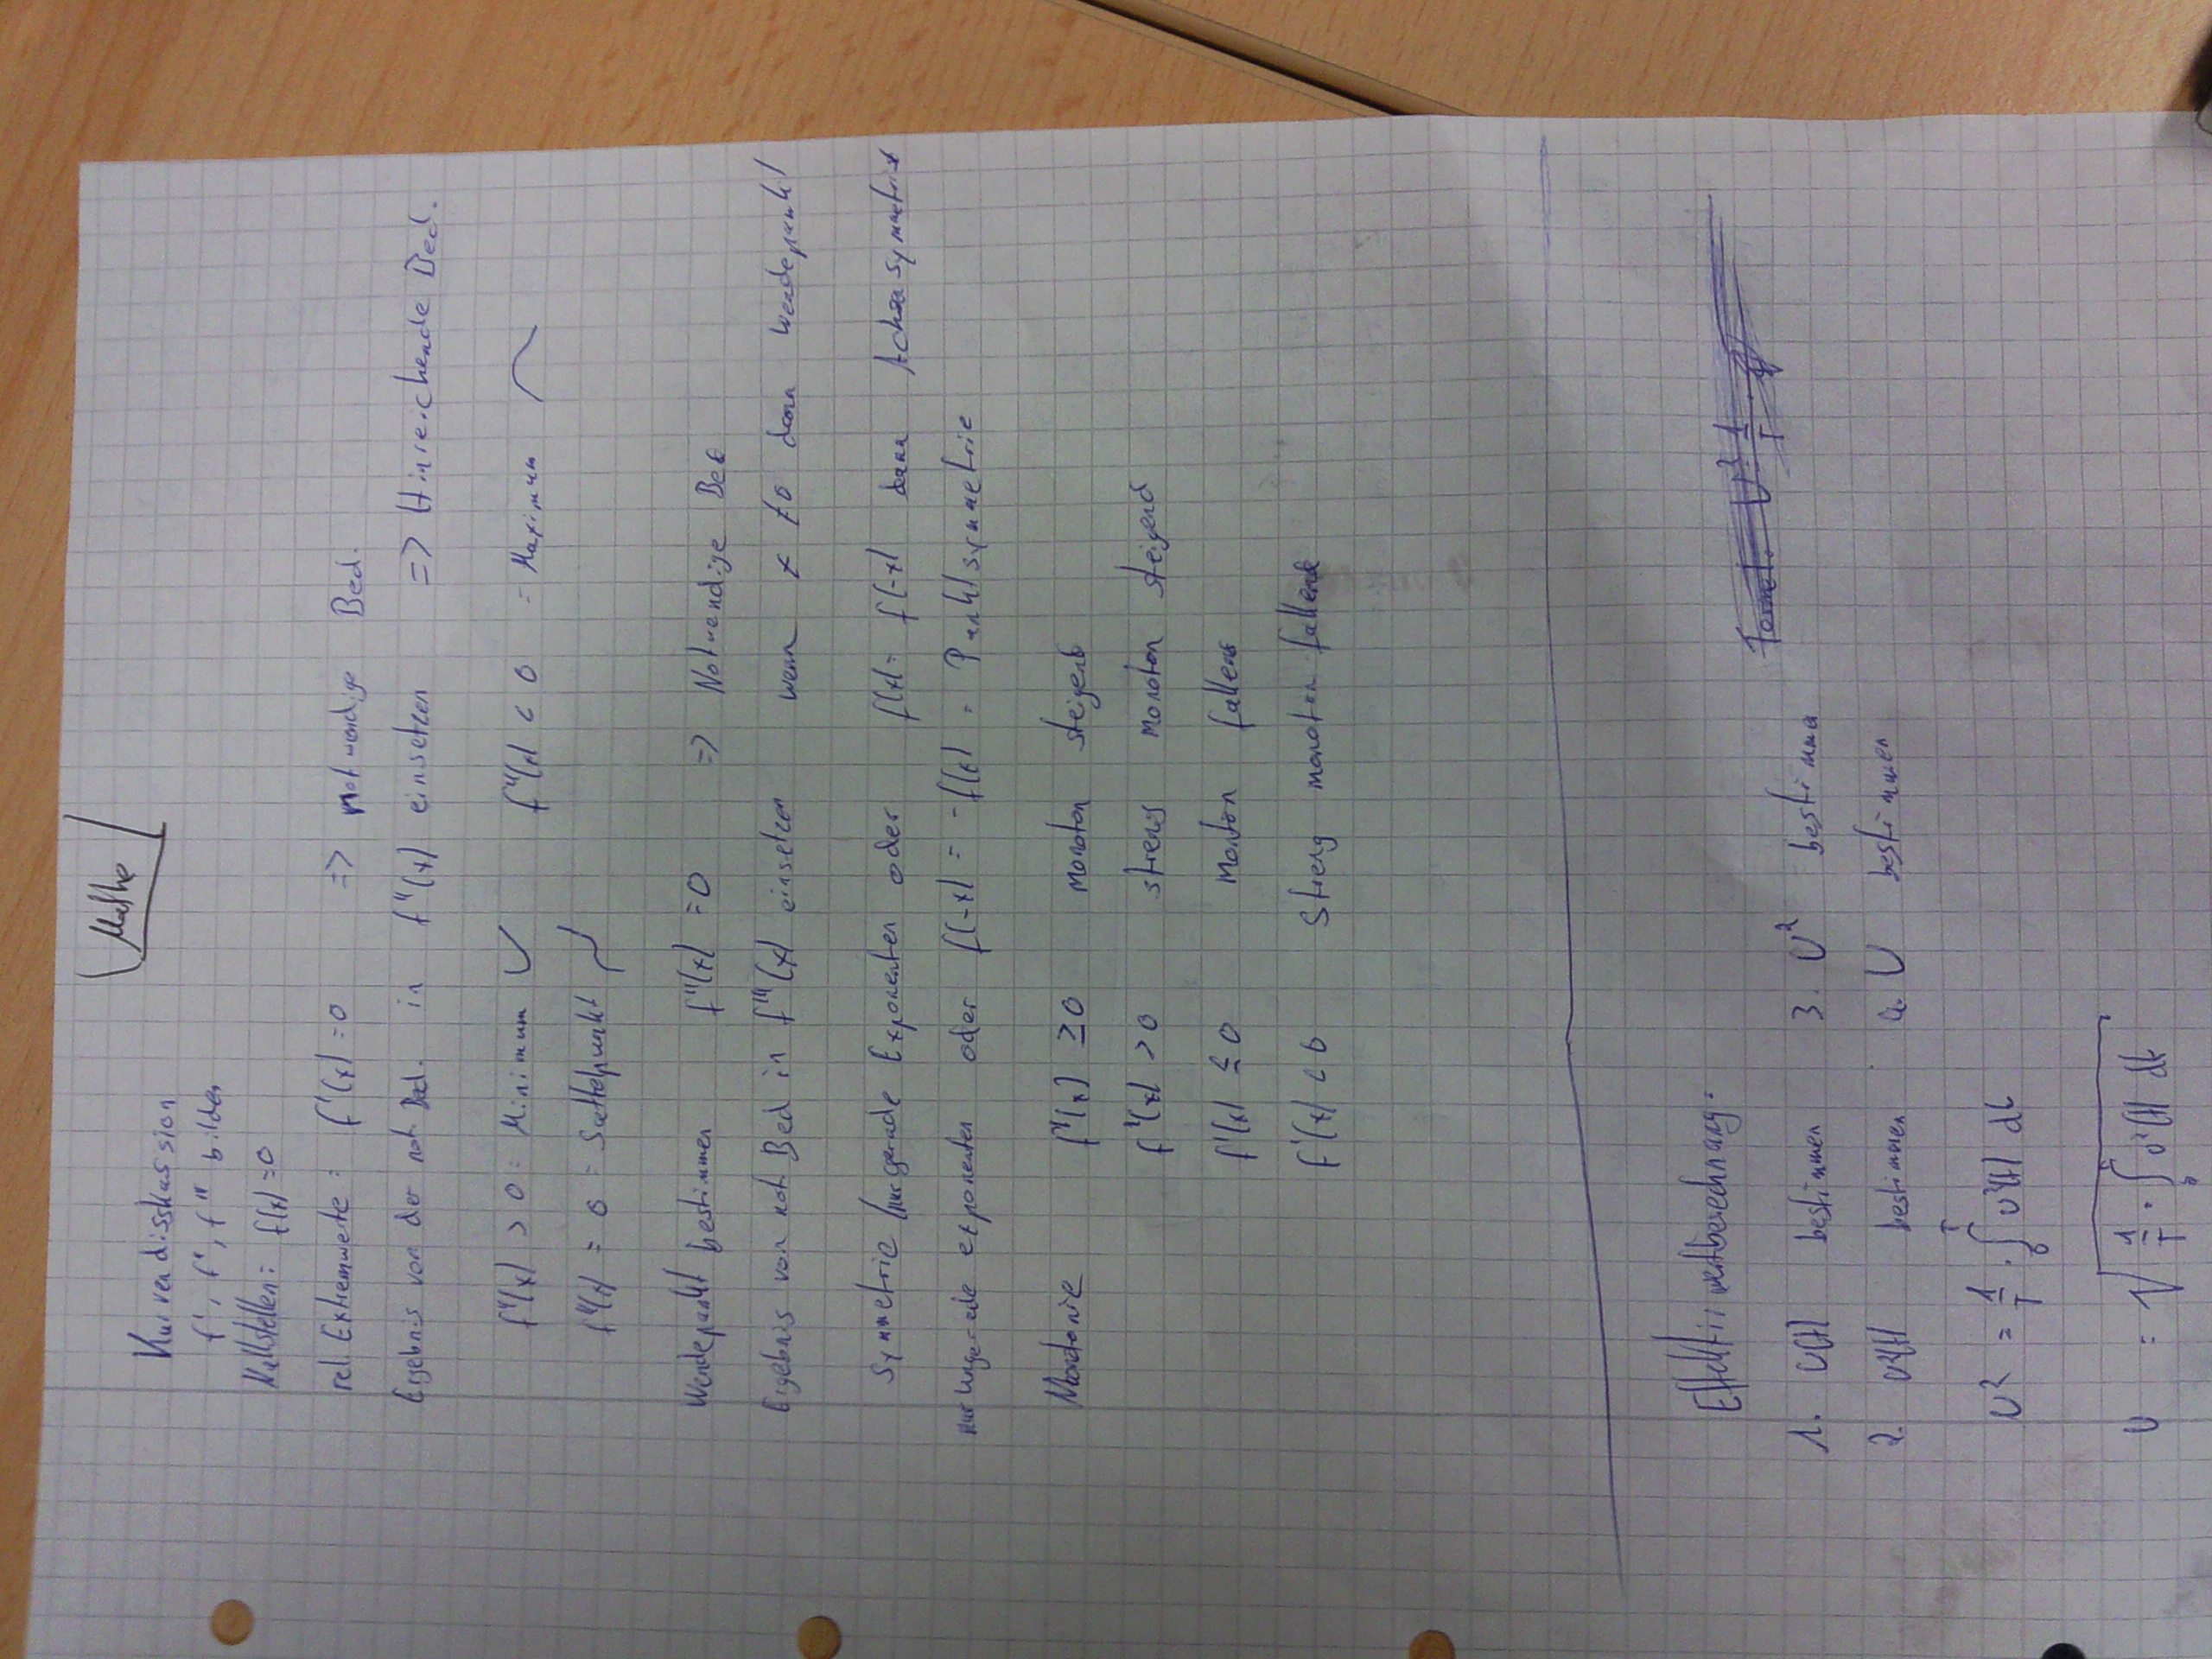 Mathe
Kurvendisskussion
f', f", f''' bilden
Nullstellen: f(x)=0
rel. Extremwete: f'(x)=0 => notwendige Bed.
Ergebnis von der not Bed. in f"(x) einsetzen => Hinreichende Bed.
f"(x) > 0 = Minimum f"(x) < 0 = Maximum
f"(x) = 0 = Sattelpunkt
Wendepunkt bestimmen f"(x) = 0 => Notwendige Bed
Ergebnis von not Bed in f'''(x) einsetzen wenn x ≠0 dann wendepunkt
Symmetrie nur gerade Exponenten oder f(x) = f(-x) dann Achsensymmetrie
nur ungerade exponenten oder f(-x) = -f(x) = Punktsymmetrie
Monotonie f'(x) ≥0 monoton steigend
f'(x) > 0 streng monoton steigend
f'(x) ≤ 0 monton fallend
f'(x) < 0 Streng monoton fallend
Effektivwertberechnung:
1. u(t) bestimmen 3. U² bestimmen
2. u²(t) bestimmen 4. U bestimmen
U² = 1/T · ∫₀ᵀ u²(t) dt
U = √(1/T · ∫₀ u²(t) dt)